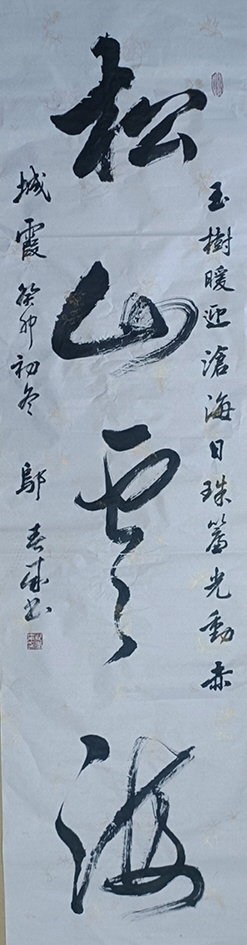 玉樹暖迎滄海日珠簾光動赤
松山雲海
城霞癸卯初冬 鄔春成书